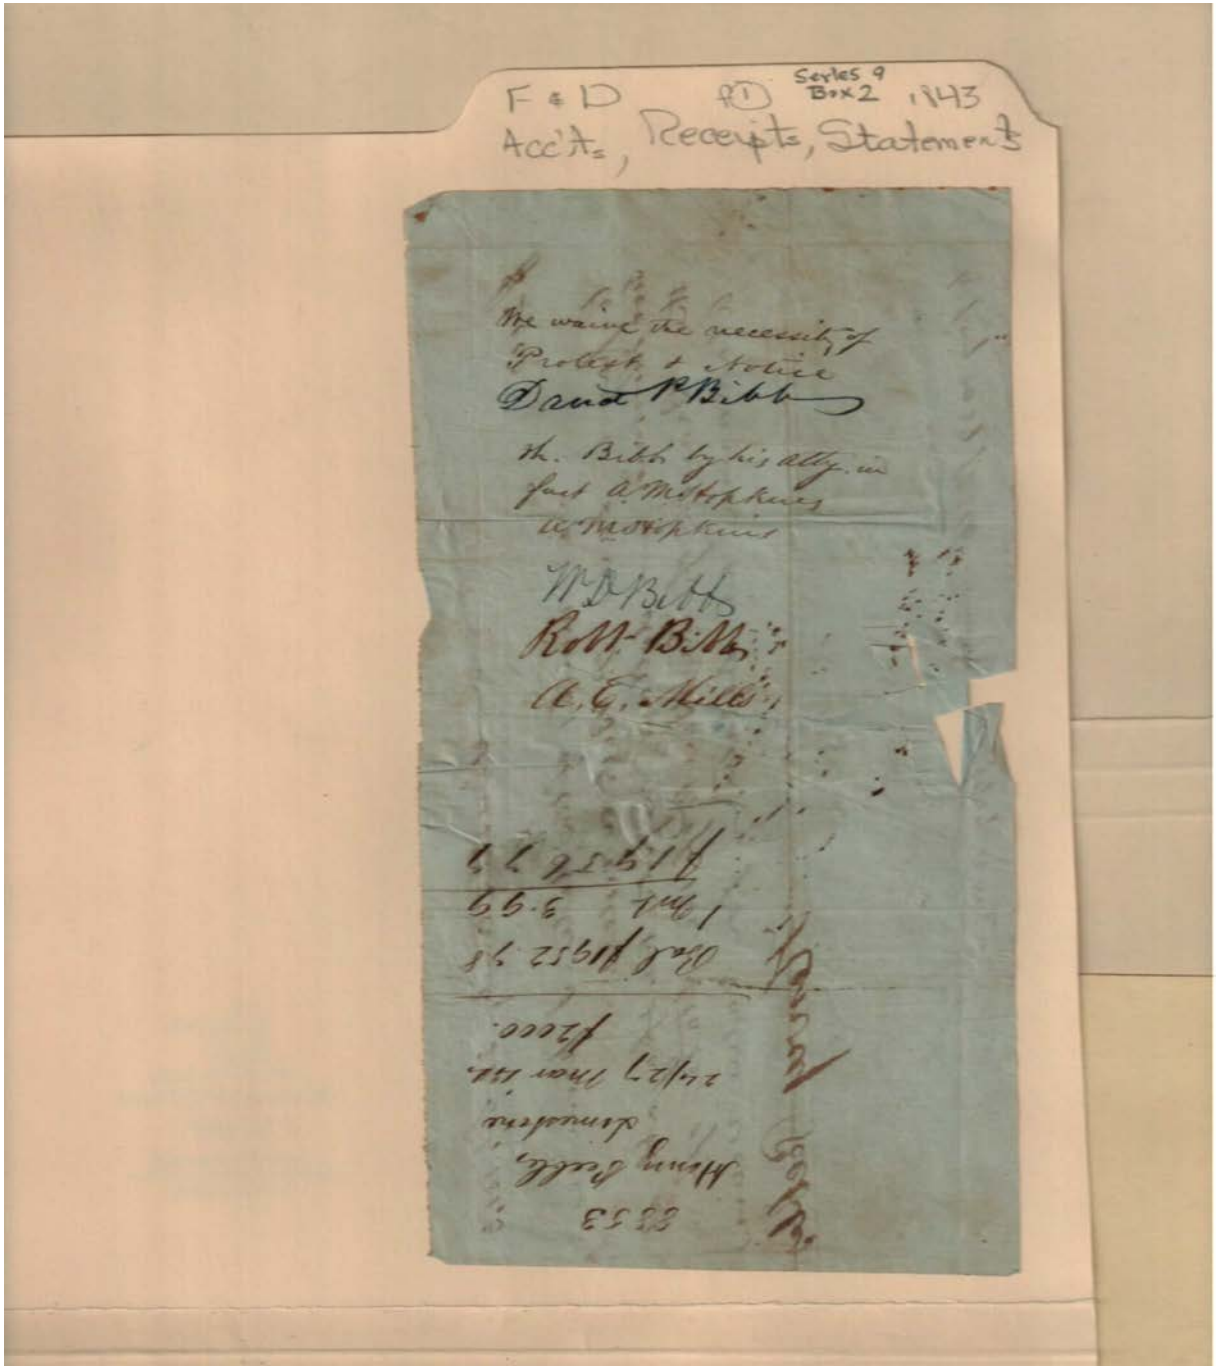 F & D ① Series 9
Box 2 1843
Acc'ts, Receipts, Statements
We waive the necessity of
Protest & Notice
David P Bibb
Th. Bibb by his atty. in
fact A M Hopkins
A M Hopkins
W D Bibb
Robt Bibb
A. E. Mills
8853
Henry
Limestone
24/27 Mar
$2000.
Bal $1952.78
Int 3.99
$1956 77